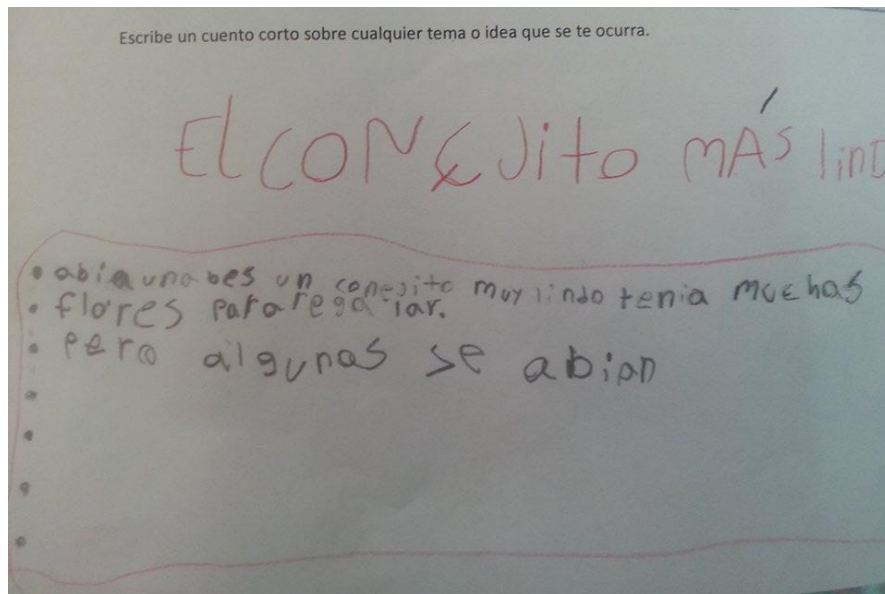 Escribe un cuento corto sobre cualquier tema o idea que se te ocurra.
El CONEJito MÁS lind
abia una bes un conejito muy lindo tenia muchas
flores para regalar.
pero algunas se abian